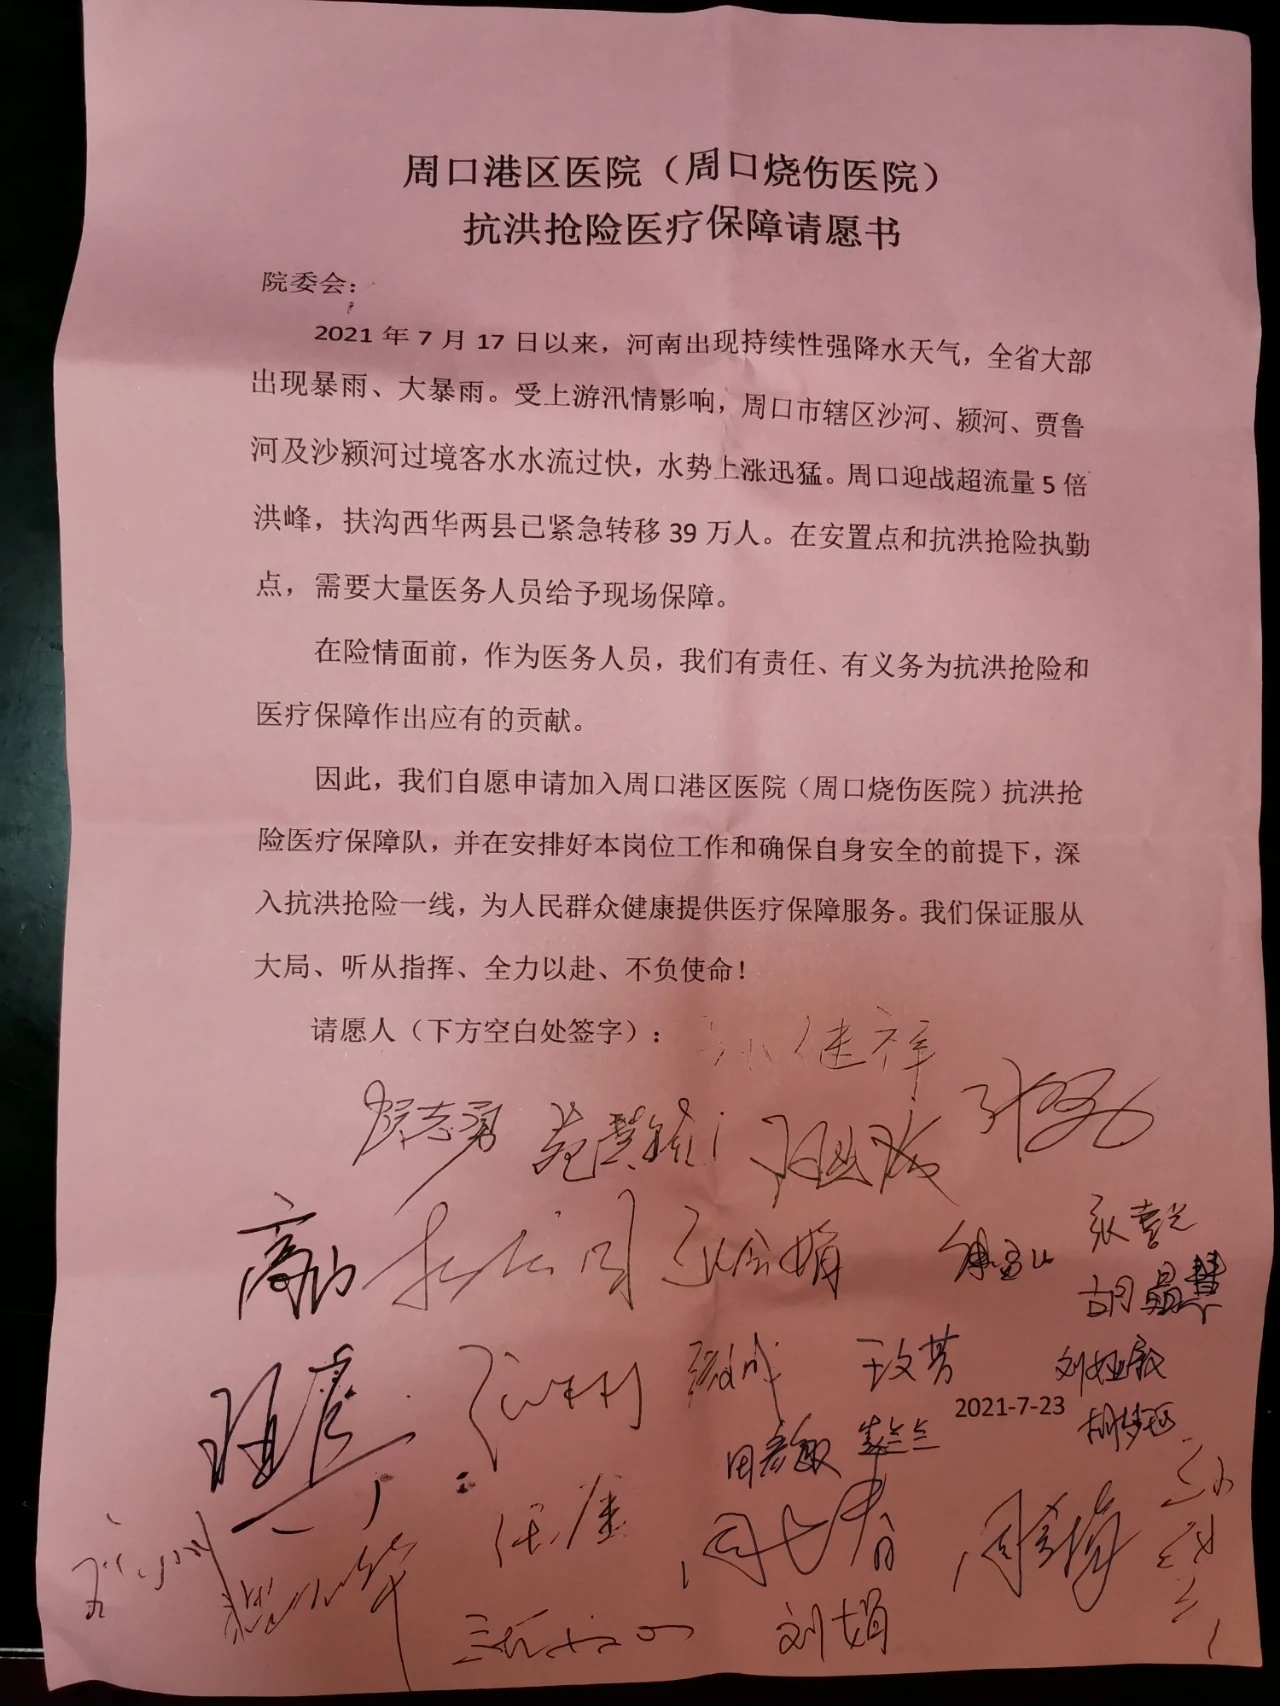 周口港区医院（周口烧伤医院）
抗洪抢险医疗保障请愿书
院委会：
2021 年 7 月 17 日以来，河南出现持续性强降水天气，全省大部
出现暴雨、大暴雨。受上游汛情影响，周口市辖区沙河、颍河、贾鲁
河及沙颍河过境客水水流过快，水势上涨迅猛。周口迎战超流量 5 倍
洪峰，扶沟西华两县已紧急转移 39 万人。在安置点和抗洪抢险执勤
点，需要大量医务人员给予现场保障。
在险情面前，作为医务人员，我们有责任、有义务为抗洪抢险和
医疗保障作出应有的贡献。
因此，我们自愿申请加入周口港区医院（周口烧伤医院）抗洪抢
险医疗保障队，并在安排好本岗位工作和确保自身安全的前提下，深
入抗洪抢险一线，为人民群众健康提供医疗保障服务。我们保证服从
大局、听从指挥、全力以赴、不负使命！
请愿人（下方空白处签字）：
张喜兰
胡晶慧
王文芳
刘娅敏
2021-7-23
田彦敏
任産
刘娟